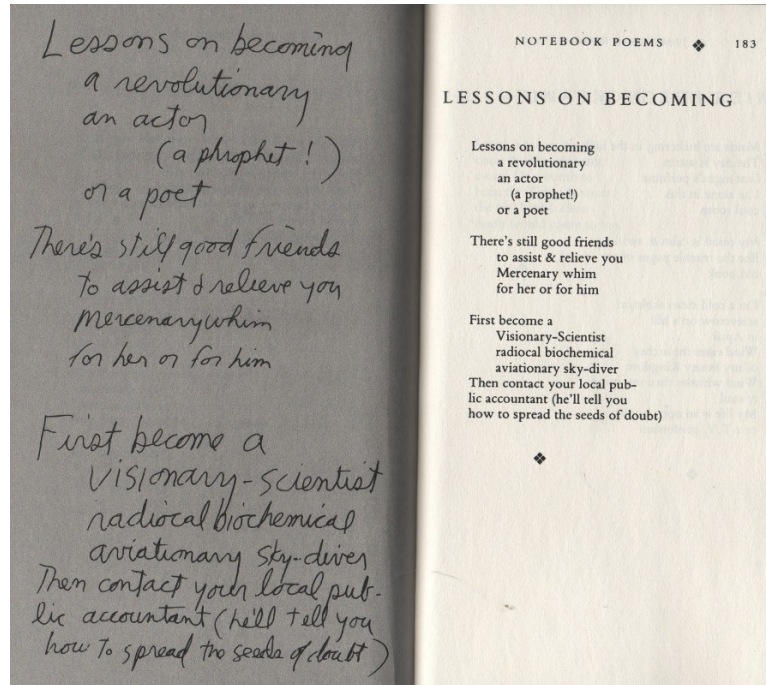 Lessons on becoming
a revolutionary
an actor
(a phrophet!)
or a poet
There's still good friends
to assist & relieve you
Mercenary whim
for her or for him
First become a
Visionary-Scientist
radiocal biochemical
aviationary sky-diver
Then contact your local pub-
lic accountant (he'll tell you
how to spread the seeds of doubt)
NOTEBOOK POEMS ❖ 183
LESSONS ON BECOMING
Lessons on becoming
a revolutionary
an actor
(a prophet!)
or a poet
There's still good friends
to assist & relieve you
Mercenary whim
for her or for him
First become a
Visionary-Scientist
radiocal biochemical
aviationary sky-diver
Then contact your local pub-
lic accountant (he'll tell you
how to spread the seeds of doubt)
❖